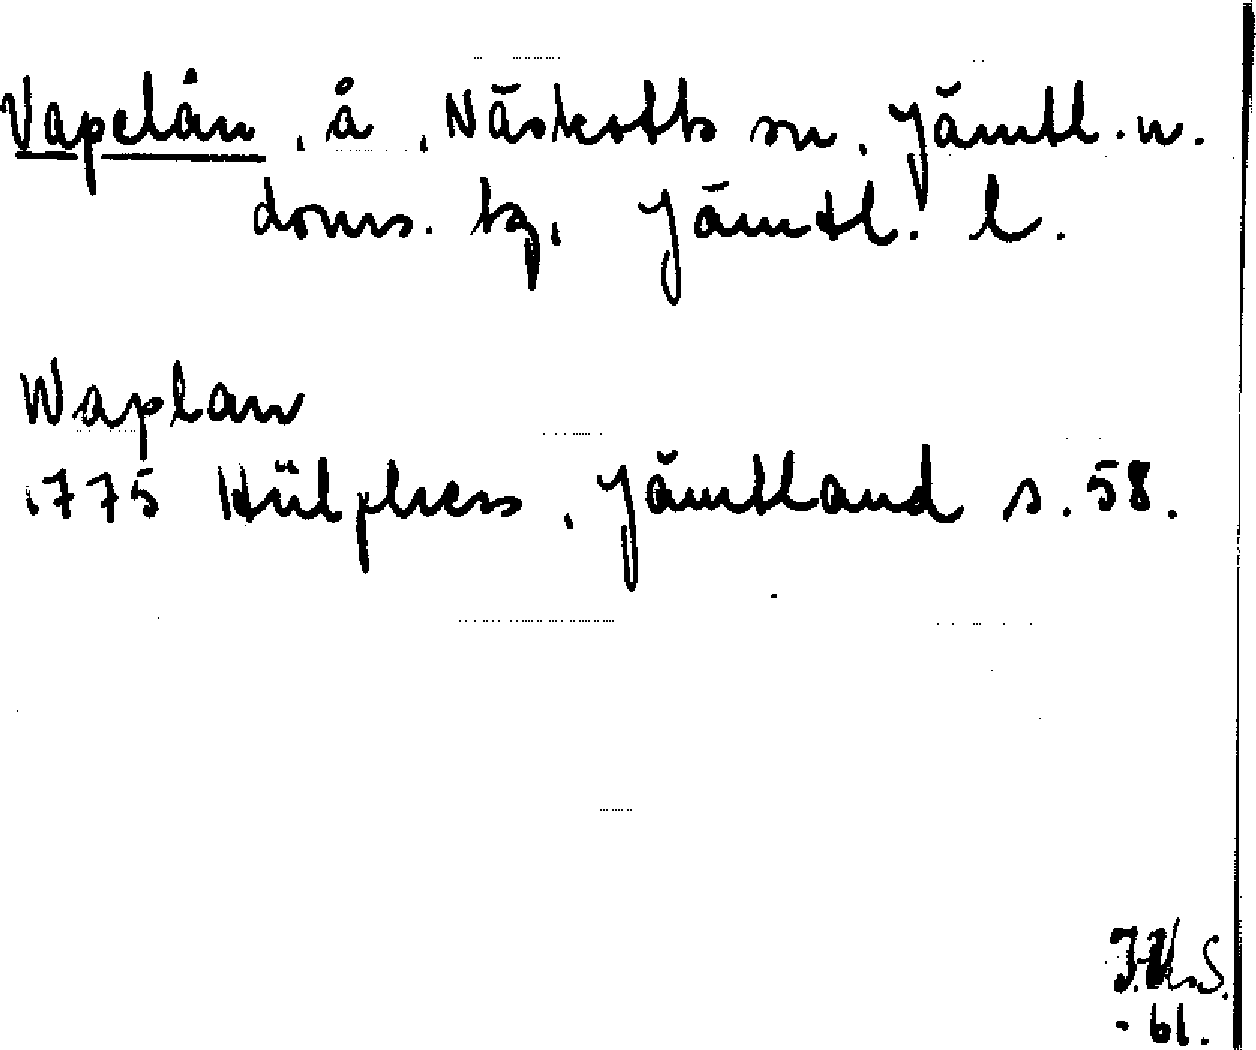 Vapelån, å, Näskotts sn, Jämtl. n.
doms. tg, Jämtl. l.
Waplan
1775 Hülphers, Jämtland s. 58.
-61.